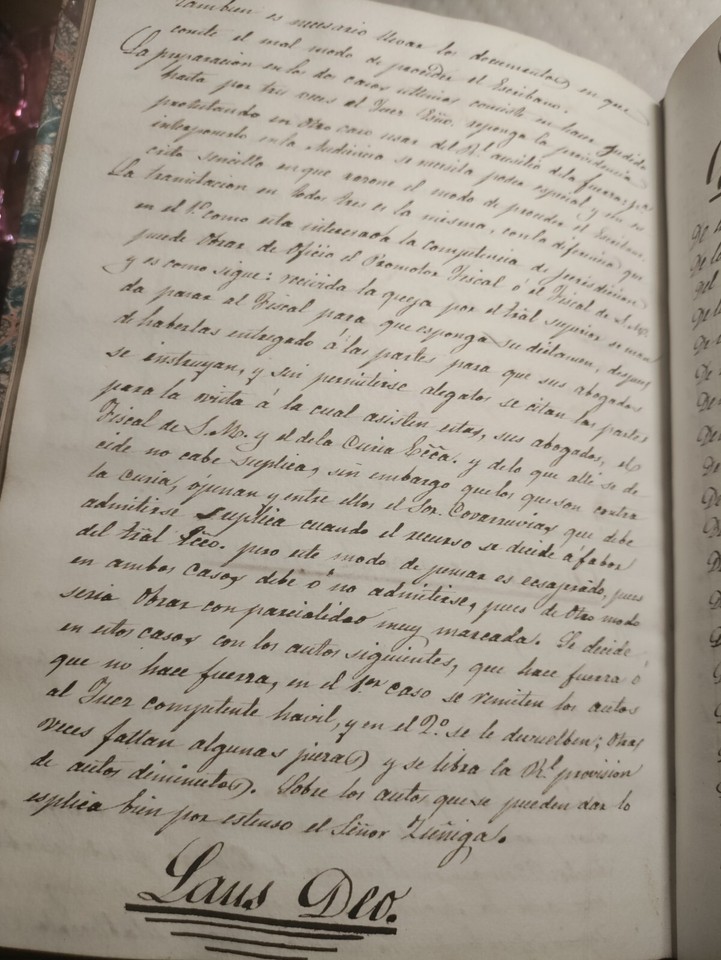 tambien es necesario llevar los documentos en que
conste el mal modo de proceder el Escribano.
La preparacion en los dos casos ultimos consiste en hacer pedido
hasta por tres veces el Juez Ecco. reponga la providencia
protestando en otro caso usar del Rl. auxilio de la fuerza, y al
interponerlo en la Audiencia se necesita poder especial y un es-
crito sencillo en que razone el modo de proceder el Escribano.
La tramitacion en todos tres es la misma, con la diferencia que
en el 1º como esta interesada la competencia de jurisdiccion
puede obrar de oficio el Promotor Fiscal ó el Fiscal de S.M.
y es como sigue: recivida la queja por el tral superior se man
da pasar al Fiscal para que esponga su dictamen, despues
de haberlas entregado á las partes para que sus abogados
se instruyan, y sin permitirse alegatos se citan las partes
para la vista á la cual asisten estas, sus abogados, el
Fiscal de S.M. y el de la Curia Ecca. y de lo que alli se de-
cide no cabe suplica, sin embargo que los que son contra
la curia, opinan y entre ellos el Sor. Covarruvias que debe
admitirse suplica cuando el recurso se decide á fabor
del tral Ecco. pero este modo de pensar es ecsajerado, pues
en ambos casos debe ó no admitirse, pues de otro modo
seria obrar con parcialidad muy marcada. Se decide
en estos casos con los autos siguientes, que hace fuerza ó
que no hace fuerza, en el 1er caso se remiten los autos
al Juez competente havil, y en el 2º. se le devuelben; otras
veces faltan algunas piezas y se libra la Rl. provision
de autos diminutos. Sobre los autos que se pueden dar lo
esplica bien por estenso el Señor Zuñiga.
Laus Deo.
De
De la
Del
De la
De
De
De
De
De
De